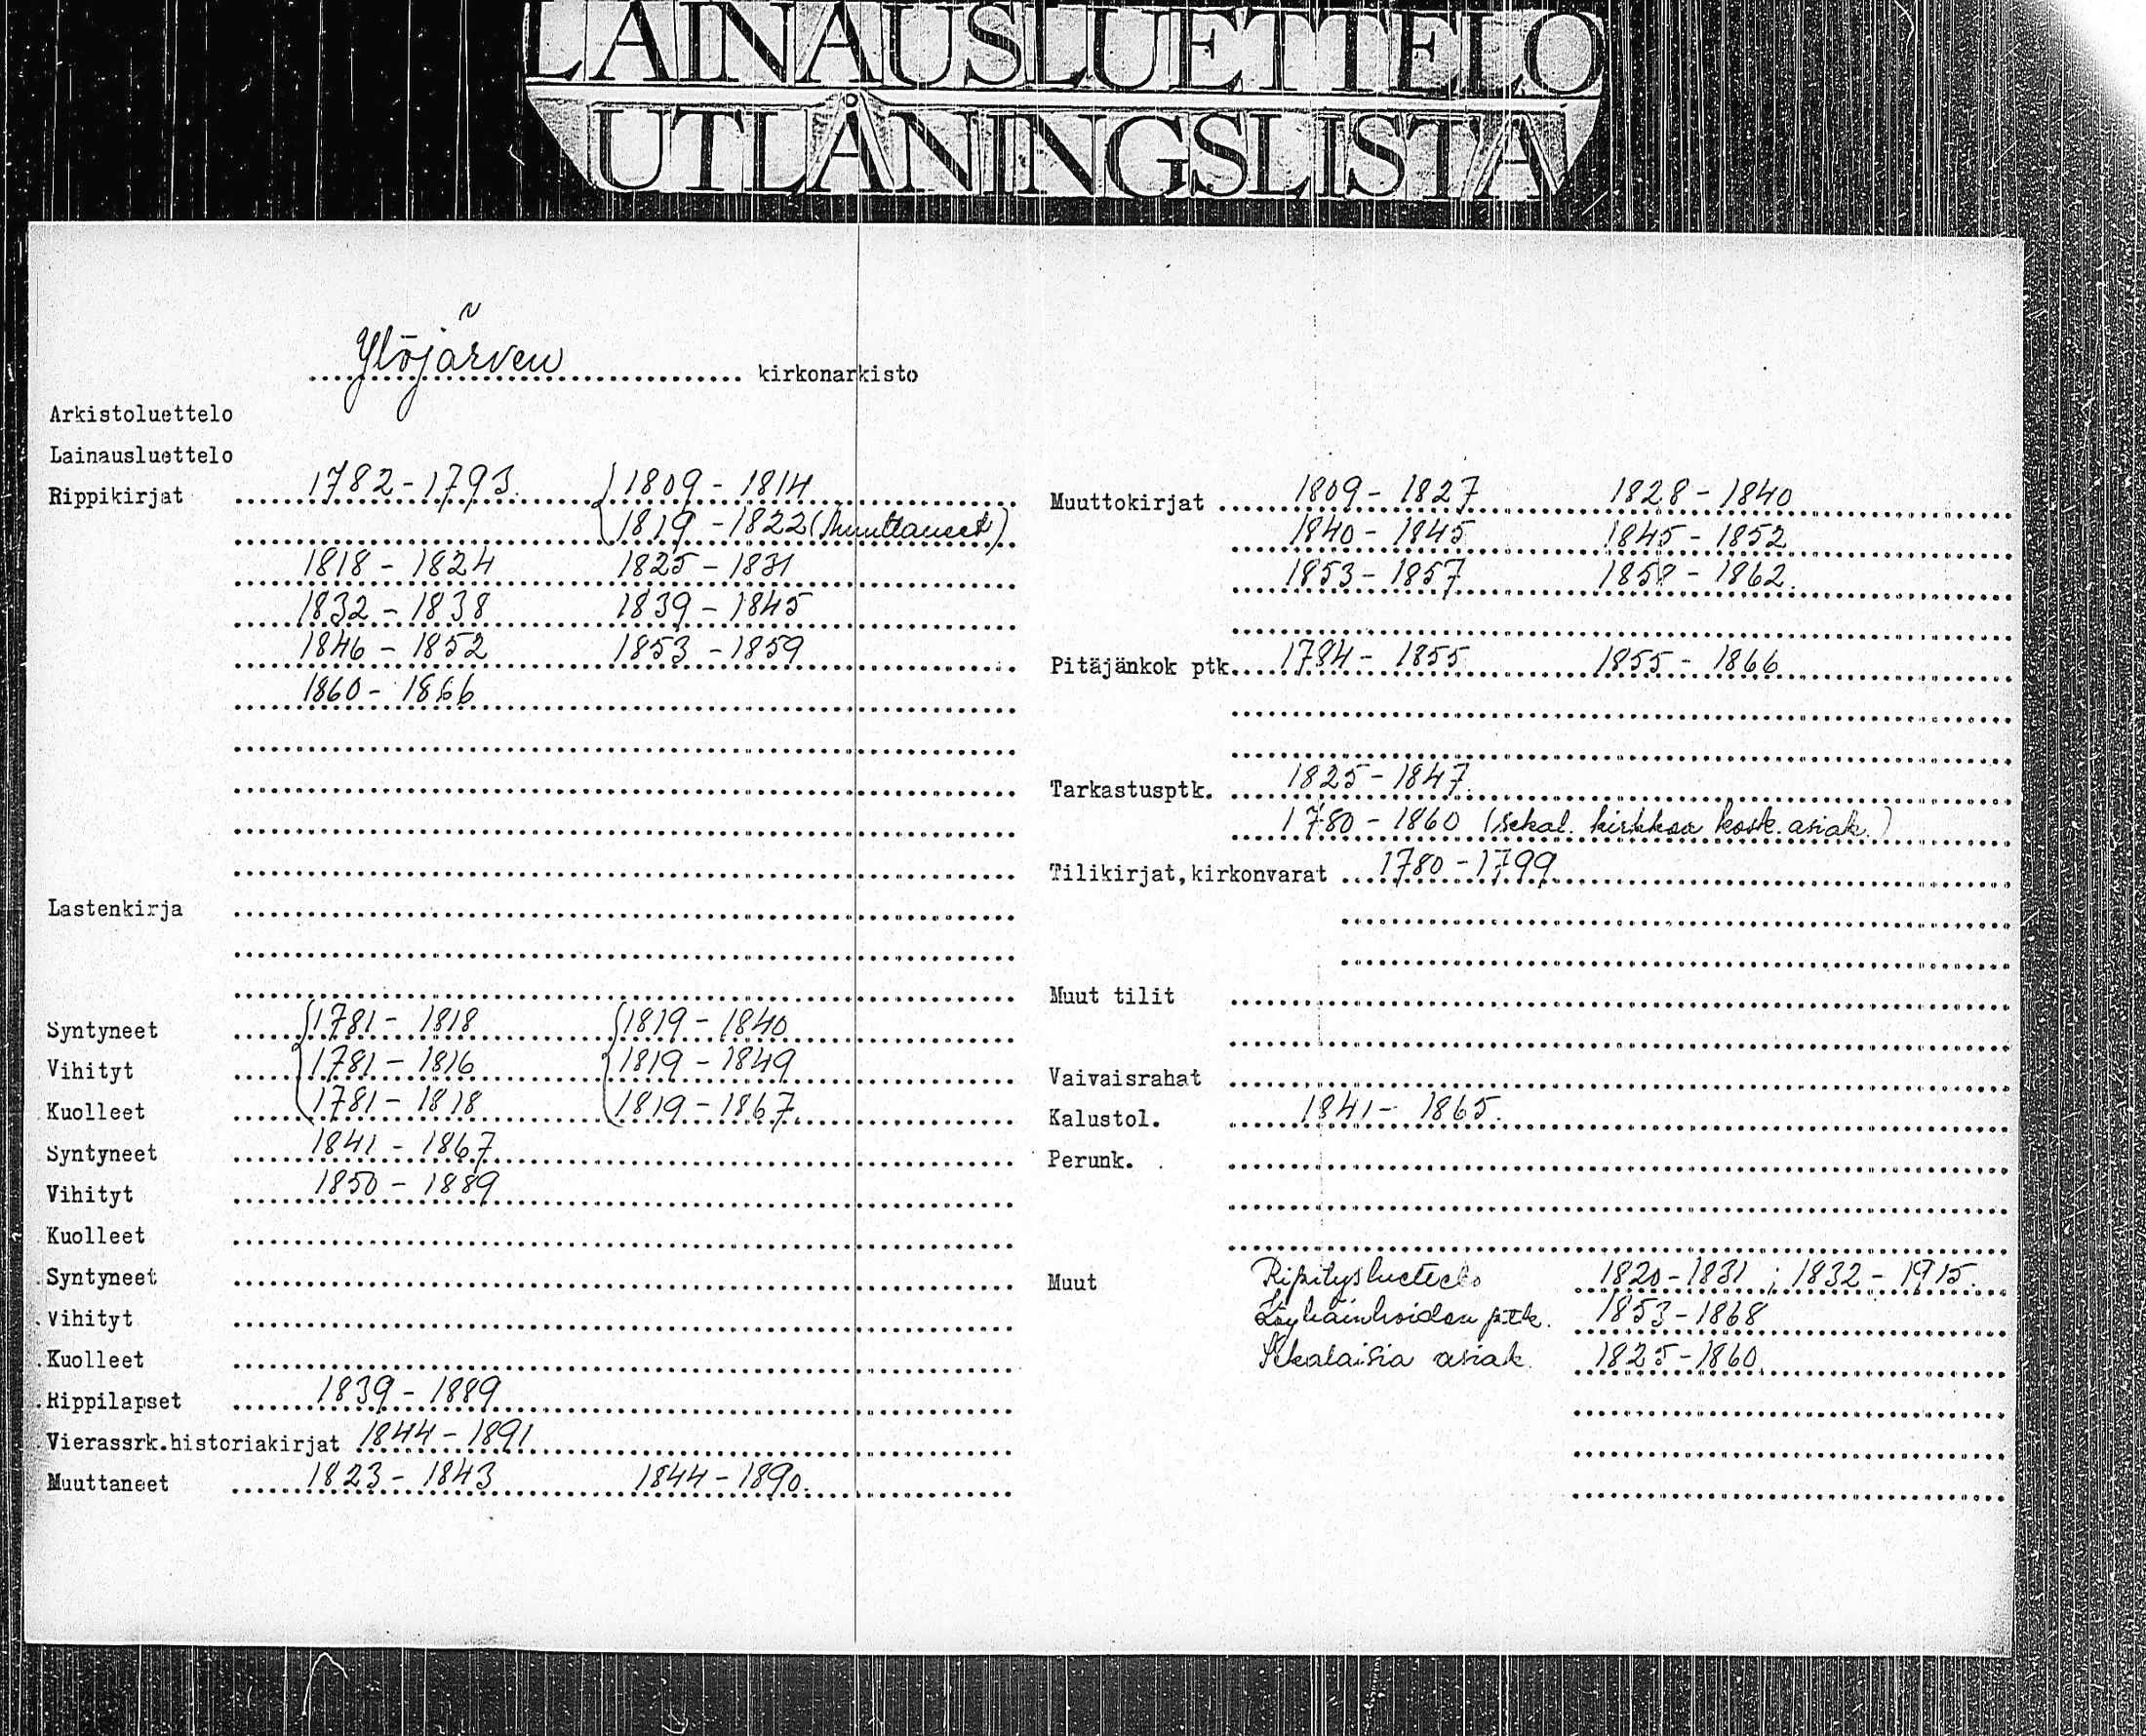 LAINAUSLUETTELO
UTLÅNINGSLISTA
Ylöjärven kirkonarkisto
Arkistoluettelo
Lainausluettelo
Rippikirjat 1782-1793. 1809 - 1814
1819 - 1822 (Muuttaneet)
1818 - 1824 1825 - 1831
1832 - 1838 1839 - 1845
1846 - 1852 1853 - 1859
1860 - 1866
Lastenkirja
Syntyneet 1781 - 1818 1819 - 1840
Vihityt 1781 - 1816 1819 - 1849
Kuolleet 1781 - 1818 1819 - 1867.
Syntyneet 1841 - 1867
Vihityt 1850 - 1889
Kuolleet
Syntyneet
Vihityt
Kuolleet
Rippilapset 1839 - 1889
Vierassrk.historiakirjat 1844 - 1891
Muuttaneet 1823 - 1843 1844 - 1890.
Muuttokirjat 1809 - 1827 1828 - 1840
1840 - 1845 1845 - 1852
1853 - 1857 1858 - 1862.
Pitäjänkok ptk. - 1855 1855 - 1866
Tarkastusptk. 1825 - 1847.
1780 - 1860 (sekal. kirkkoa kosk. asiak.)
Tilikirjat, kirkonvarat 1780 - 1799
Muut tilit
Vaivaisrahat
Kalustol. 1841 - 1865.
Perunk.
Muut Ripitysluettelo 1820-1831 ; 1832 - 1915.
Köyhäinhoidon ptk. 1853 - 1868
Sekalaisia asiak. 1825 - 1860.